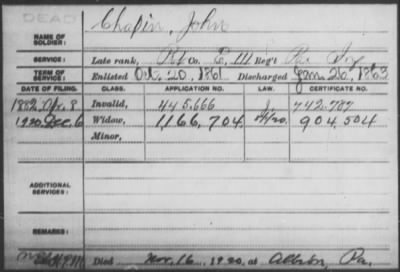 DEAD
Chapin, John
NAME OF SOLDIER:
SERVICE: Late rank, Pvt Co. E, 111 Reg't Pa. Inf
TERM OF SERVICE: Enlisted Oct. 20, 1861 Discharged Jan. 26, 1863
DATE OF FILING. CLASS. APPLICATION NO. LAW. CERTIFICATE NO.
1882, Apr. 8 Invalid, 445.666 742.787
1920, Dec, 6 Widow, 1166,704 904,504
Minor,
ADDITIONAL SERVICES:
REMARKS:
Died Nov. 16 1920, at Albion, Pa.